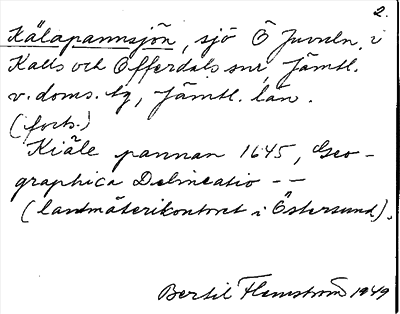 2.
Kälapannsjön, sjö Ö Juvuln, i
Kalls och Offerdals snr, Jämtl.
v. doms. tg, Jämtl. län.
(forts.)
Kiäle pannan 1645, Geo-
graphica Delineatio --
(lantmäterikontoret i Östersund).
Bertil Flemström 1949